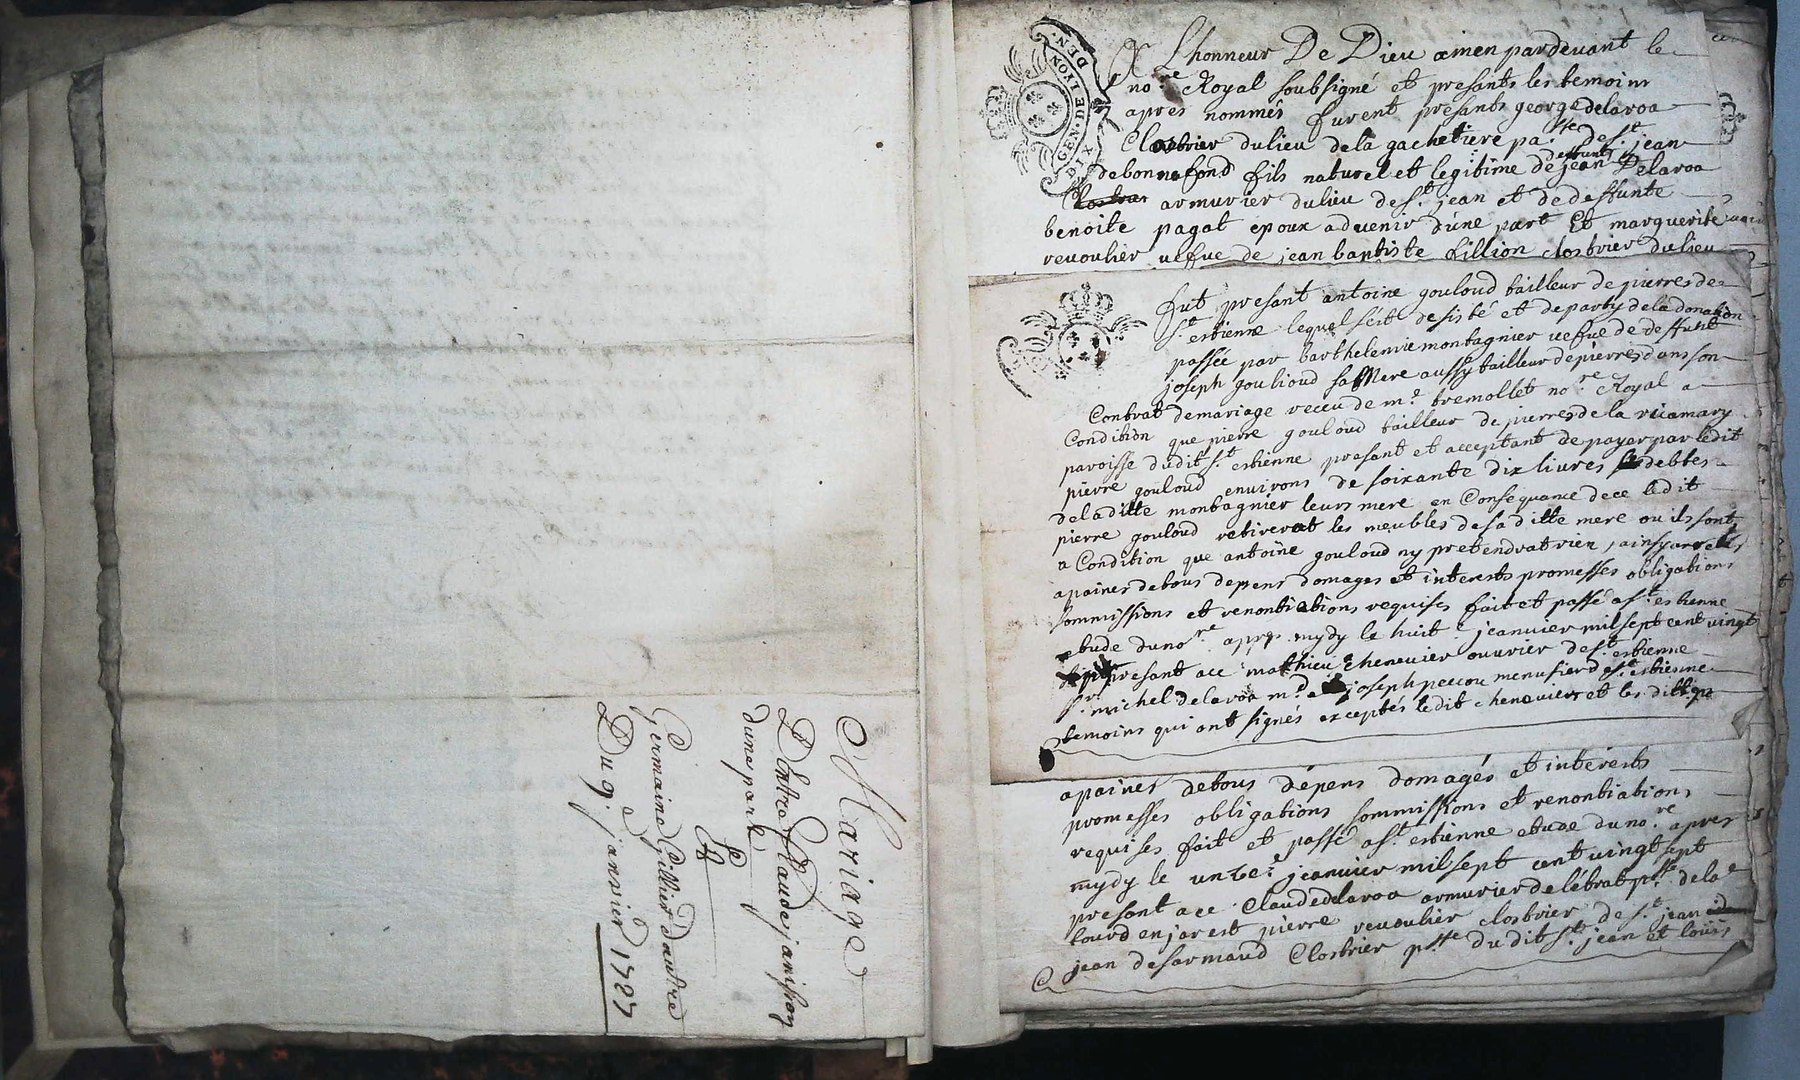 Mariage
Dentre Claude janisson
dune part
Et
Germaine Gillier Dautre
Du 9e janvier 1727
GEN. DE LYON
DIX DEN.
A Lhonneur De Dieu amen pardevant le
nore Royal soubsigné et presants les temoins
apres nommés furent presants george delaroa
Clostrier dulieu dela gachetiere passe de st jean
debonnefond fils naturel et legitime de deffunt jean Delaroa
armurier dulieu de st jean et de deffunte
benoite pagat epoux advenir d'une part Et marguerite
revoulier vefve de jean baptiste fillion clostrier dulieu
fut presant antoine gouloud tailleur de pierres de
st estienne lequel s'est desisté et departy dela donation
passée par barthelemie montagnier vefve de deffunt
joseph goulioud sa Mere aussy tailleur depierres dans son
Contrat demariage receu de me tremollet nore Royal a
Condition que pierre gouloud tailleur de pierres de la ricamary
paroisse dudit st estienne presant et acceptant de payer par ledit
pierre gouloud environs de soixante dix livres debtes
deladitte montagnier leurs mere en Consequance dece ledit
pierre gouloud retirerat les meubles desaditte mere ou ils sont
a Condition que antoine gouloud ny pretendrat rien, ainsy
apaines detous depens domages et interests promesses obligations
sommissions et renontiations requises fait et passé a st estienne
etude dunore apres mydy le huit e jeanvier mil sept cent vingt
presant ace mathieu chenevier ouvrier de st estienne
sr michel delaroa md et joseph peccou menusier de st estienne
temoins qui ont signés exceptés ledit chenevier et les dittes
apaines detous dépens domagés et intérests
promesses obligations sommissions et renontiations
requises fait et passé a st estienne etude dunore
mydy le unze e jeanvier mil sept cent vingt sept apres
presant ace Claude delaroa armurier de létrat psse dela
tourd en jarest pierre revoulier clostrier de st jean
jean desarmaud Clostrier psse dudit st jean et louis